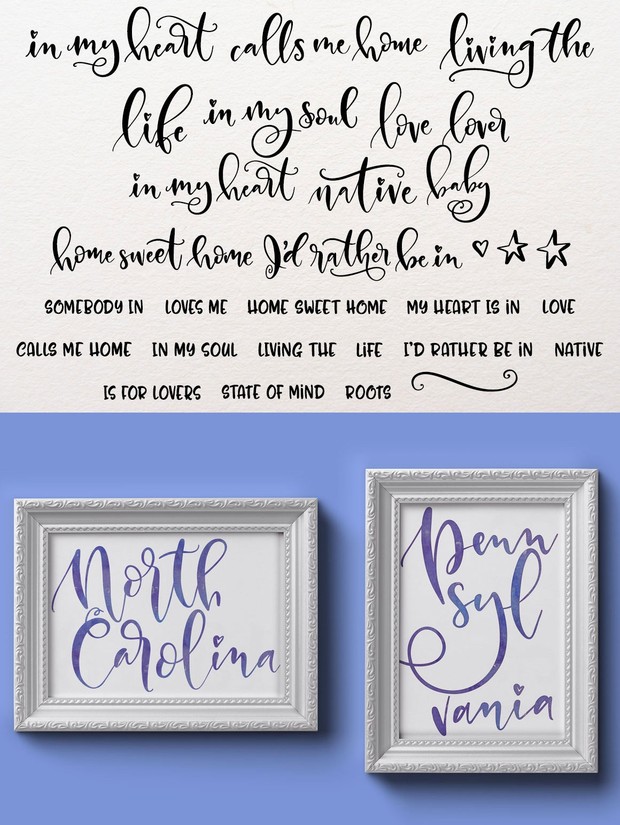 in my heart calls me home living the
life in my soul love lover
in my heart native baby
home sweet home I'd rather be in
SOMEBODY IN LOVES ME HOME SWEET HOME MY HEART IS IN LOVE
CALLS ME HOME IN MY SOUL LIVING THE LIFE I'D RATHER BE IN NATIVE
IS FOR LOVERS STATE OF MIND ROOTS
North
Carolina
Penn
syl
vania